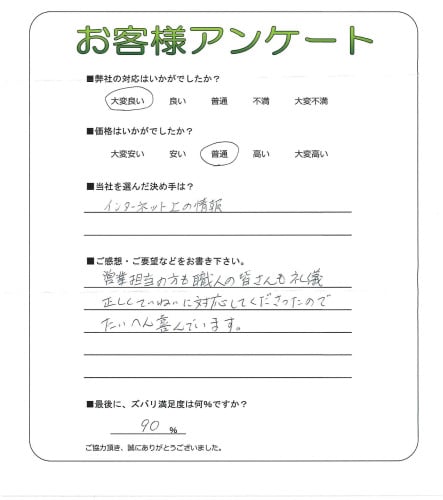 お客様アンケート
■弊社の対応はいかがでしたか?
大変良い 良い 普通 不満 大変不満
■価格はいかがでしたか?
大変安い 安い 普通 高い 大変高い
■当社を選んだ決め手は?
インターネット上の情報
■ご感想・ご要望などをお書き下さい。
営業担当の方も職人の皆さんも礼儀
正しくていねいに対応してくださったので
たいへん喜んでいます。
■最後に、ズバリ満足度は何%ですか?
90 %
ご協力頂き、誠にありがとうございました。